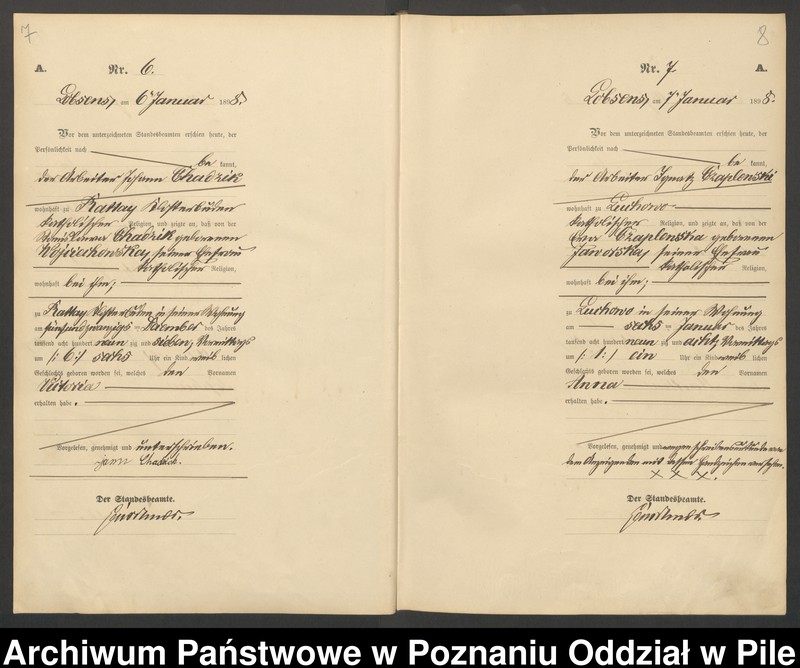 7
A. Nr. 6.
Lobsens, am 6ten Januar 1898.
Vor dem unterzeichneten Standesbeamten erschien heute, der
Persönlichkeit nach
be kannt,
der Arbeiter Johann Chadzik
wohnhaft zu Rattay Klosterbuden
katholischer Religion, und zeigte an, daß von der
Chadzik geborenen
seiner Ehefrau
katholischer Religion,
wohnhaft bei ihm,
zu Rattay Klosterbuden in seiner Wohnung
am fünfundzwanzigsten Dezember des Jahres
tausend acht hundert neunzig und sieben, Vormittags
um (: 6 :) sechs Uhr ein Kind weiblichen
Geschlechts geboren worden sei, welches den Vornamen
Viktoria
erhalten habe.
Vorgelesen, genehmigt und unterschrieben.
Chadzik
Der Standesbeamte.
8
Nr. 7. A.
Lobsens, am 7ten Januar 1898.
Vor dem unterzeichneten Standesbeamten erschien heute, der
Persönlichkeit nach
be kannt,
der Arbeiter Ignatz Czaplenski
wohnhaft zu Luchowo
katholischer Religion, und zeigte an, daß von der
Eva Czaplenska geborenen
Jaworska, seiner Ehefrau
katholischer Religion,
wohnhaft bei ihm,
zu Luchowo in seiner Wohnung
am sechsten Januar des Jahres
tausend acht hundert neunzig und acht, Vormittags
um (: 1 :) ein Uhr ein Kind weiblichen
Geschlechts geboren worden sei, welches den Vornamen
Anna
erhalten habe.
Vorgelesen, genehmigt und wegen Schreibensunkunde von
dem Anzeigenden mit dessen Handzeichen versehen.
x x x.
Der Standesbeamte.
Archiwum Państwowe w Poznaniu Oddział w Pile